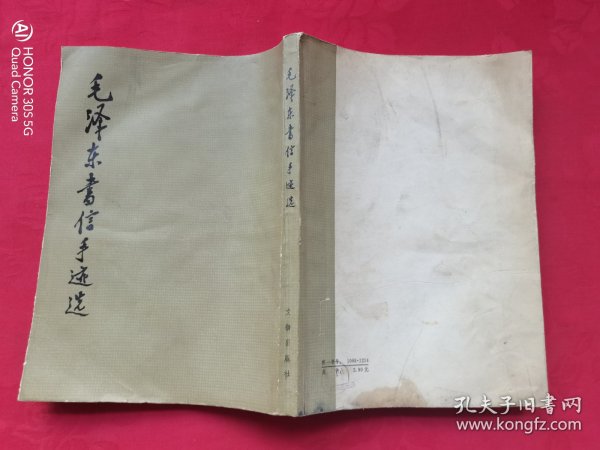 AI HONOR 30S 5G
Quad Camera
毛泽东书信手迹选
毛泽东书信手迹选
文物出版社
统一书号：
定价
2.90元
孔夫子旧书网
www.kongfz.com